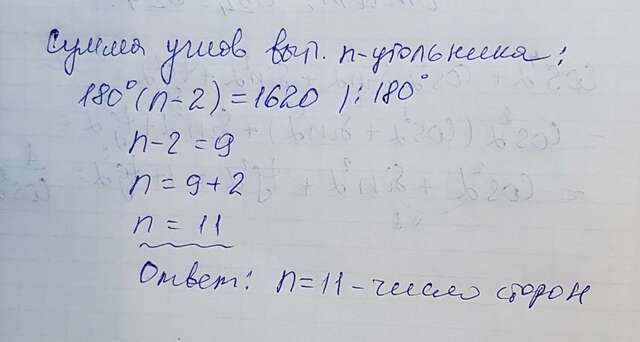 Сумма углов вып. n-угольника:
180°(n-2) = 1620 ):180°
n-2=9
n=9+2
n = 11
Ответ: n=11-число сторон